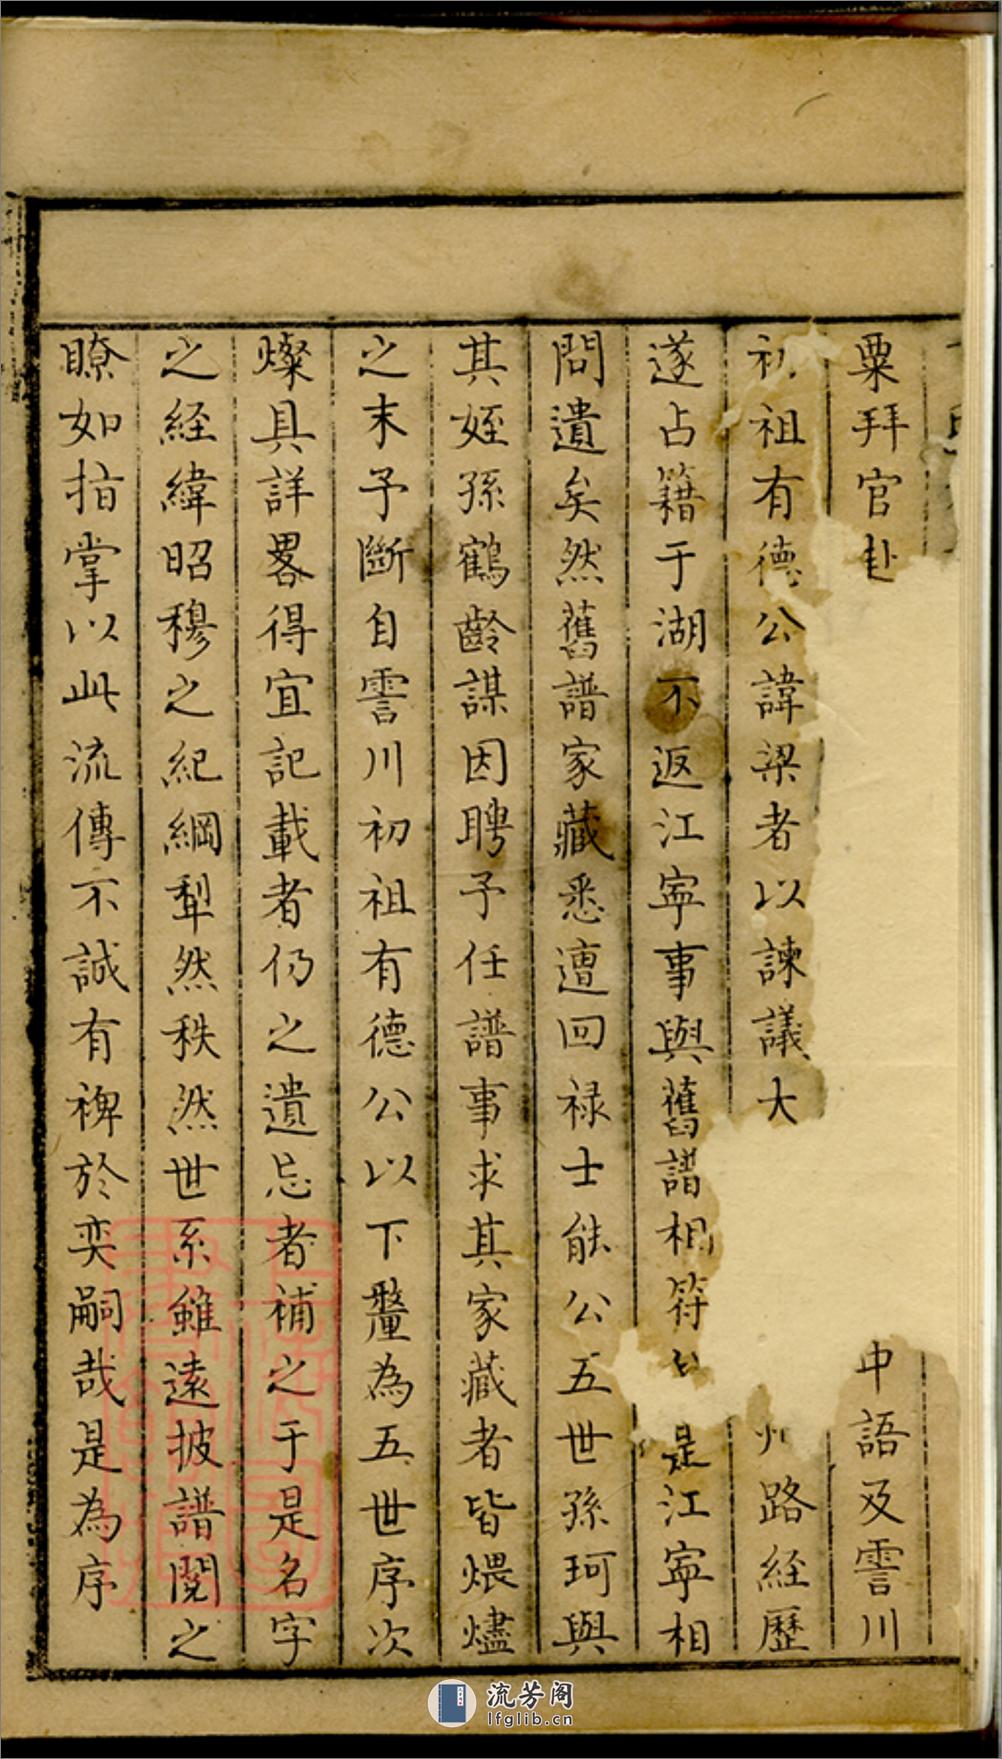 粟拜官赴中語及霅川
初祖有德公諱梁者以諫議大路經歷
遂占籍于湖不返江寧事與舊譜相符是江寧相
問遺矣然舊譜家藏悉遭回祿士能公五世孫珂與
其姪孫鶴齡謀因聘予任譜事求其家藏者皆煨燼
之末予斷自霅川初祖有德公以下釐為五世序次
燦具詳畧得宜記載者仍之遺忘者補之于是名字
之経緯昭穆之紀綱犁然秩然世系雖遠披譜閱之
瞭如指掌以此流傳不誠有裨於奕嗣哉是為序
流芳阁
lfglib.cn